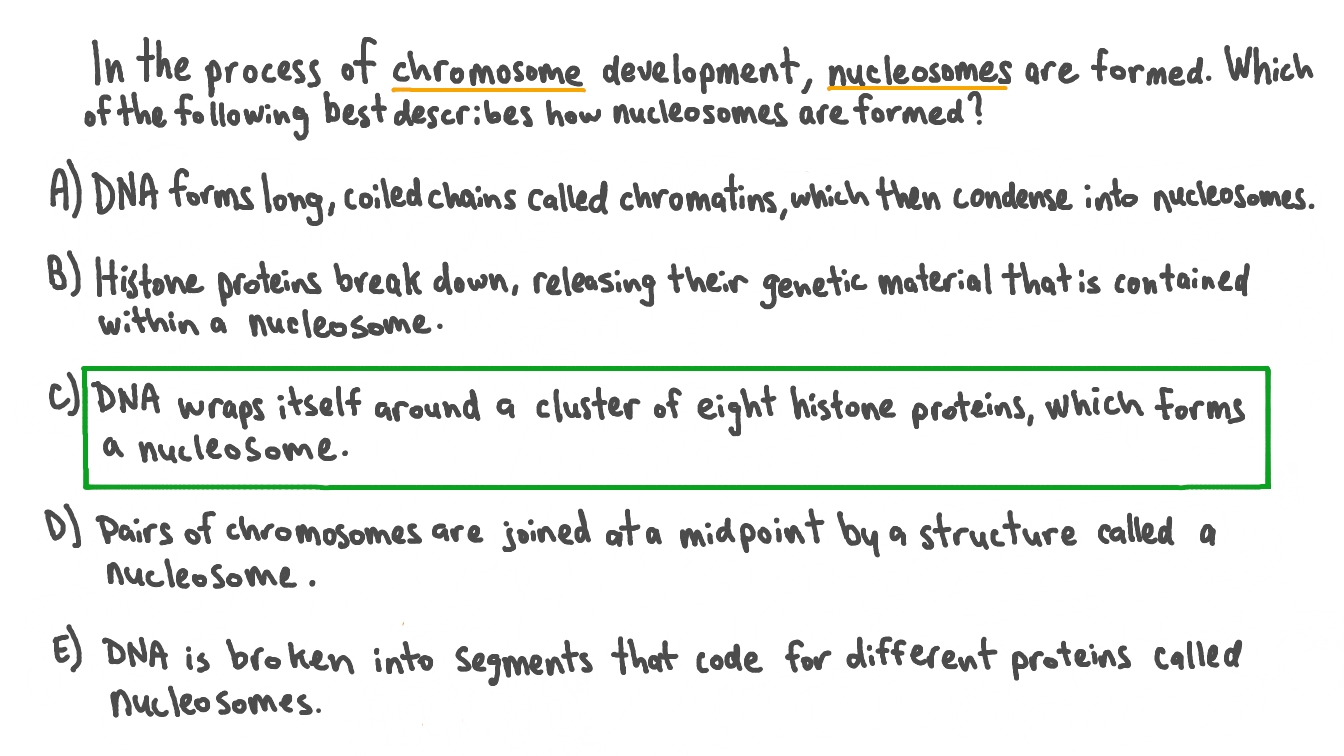 In the process of chromosome development, nucleosomes are formed. Which
of the following best describes how nucleosomes are formed?
A) DNA forms long, coiled chains called chromatins, which then condense into nucleosomes.
B) Histone proteins break down, releasing their genetic material that is contained
within a nucleosome.
C) DNA wraps itself around a cluster of eight histone proteins, which forms
a nucleosome.
D) Pairs of chromosomes are joined at a midpoint by a structure called a
nucleosome.
E) DNA is broken into segments that code for different proteins called
nucleosomes.